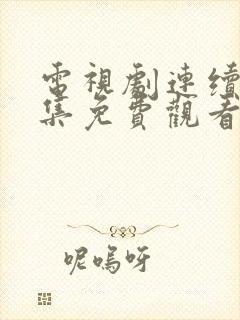 電視劇連續
集免費觀看
呢嗚呀